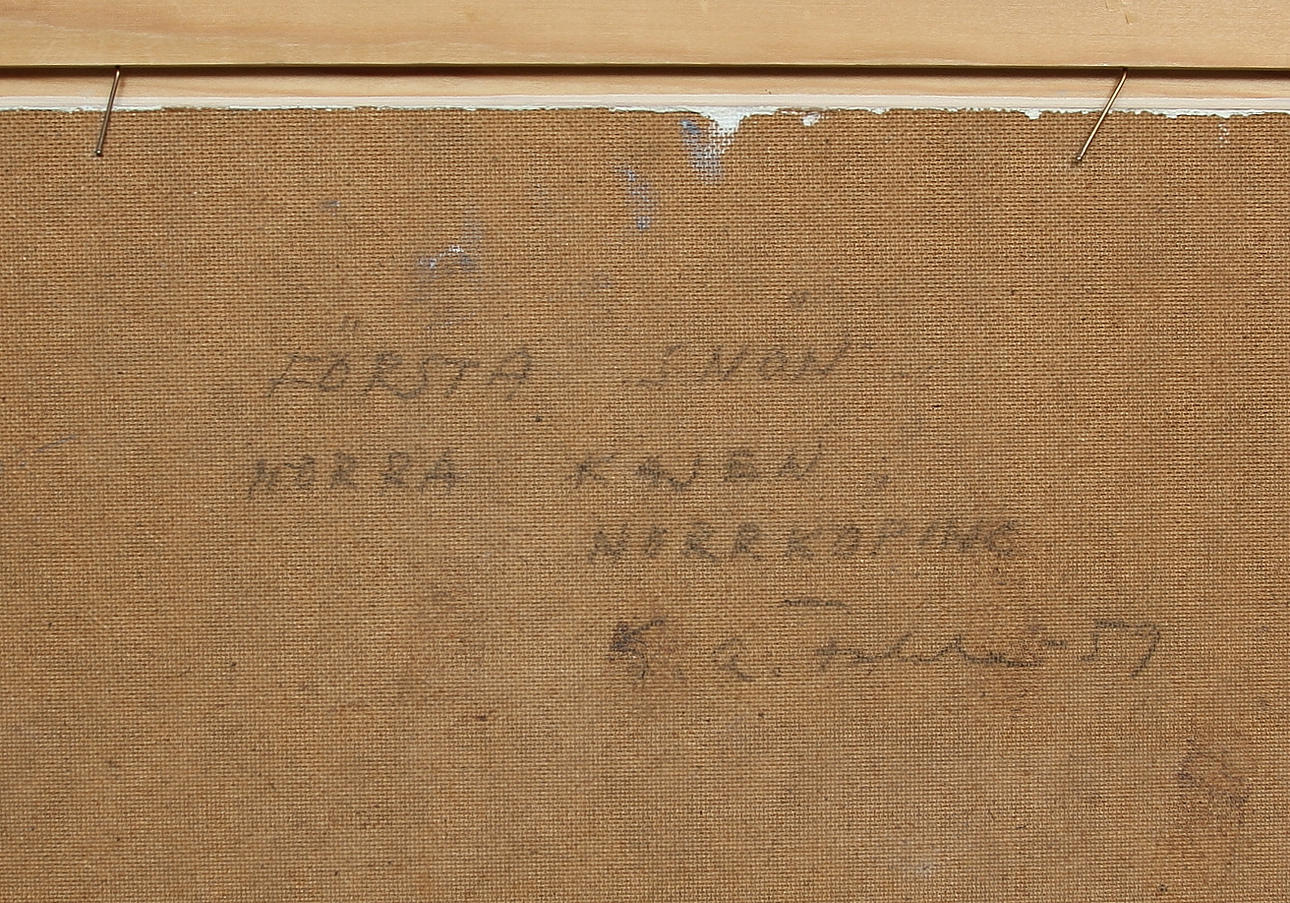 FÖRSTA SNÖN
NORRA KAJEN,
NORRKÖPING
K. A. -57